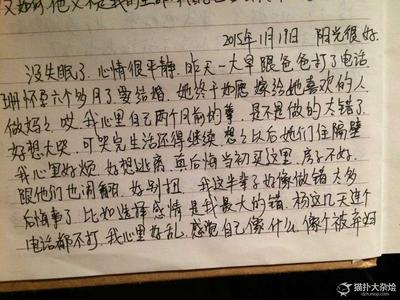 2015年1月17日 阳光很好.
没失眠了.心情很平静.昨天一大早跟爸爸打了电话
珊怀孕六个多月了.要结婚.她终于如愿嫁给她喜欢的人
做妈妈.哎.我心里自己两个月前的孽.是不是做的太错了.
好想大哭.可哭完生活还得继续.想想以后她们住隔壁
我心里好烦.好想逃离.真后悔当初买这里.房子不好.
跟他们也闹翻.好别扭. 我这半辈子好像做错太多
后悔事了.比如选择感情是我最大的错.杨这几天连个
电话都不打.我心里好乱.感觉自己像什么.像个被弃妇
猫扑大杂烩
dzh.mop.com